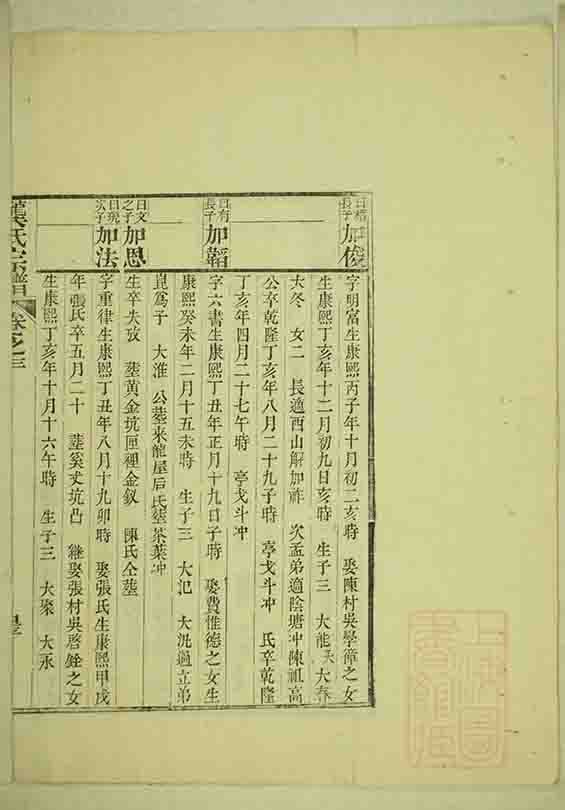 曰楷長子
加俊
字明富生康熙丙子年十月初二亥時 娶陳村吳學簞之女
生康熙丁亥年十二月初九日亥時 生子三 大能夭 大春
大冬 女二 長適西山解加祚 次孟弟適陰塘冲陳祖高
公卒乾隆丁亥年八月二十九子時 亭戈斗冲 氏卒乾隆
丁亥年四月二十七午時 亭戈斗冲
曰有長子
加韜
字六書生康熙丁丑年正月十九日子時 娶費惟德之女生
康熙癸未年二月十五未時 生子三 大氾 大洗過立弟
崑爲子 大淮 公塟來龍屋后氏塟茶葉冲
曰文之子
加恩
生卒失攷 塟黃金坑匣裡金釵 陳氏仝塟
曰琥次子
加法
字重律生康熙丁丑年八月十九卯時 娶張氏生康熙甲戌
年 張氏卒五月二十 塟奚丈坑凸 繼娶張村吳啓銓之女
生康熙丁亥年十月十六午時 生子三 大聚 大永
氏宗譜
卷之三